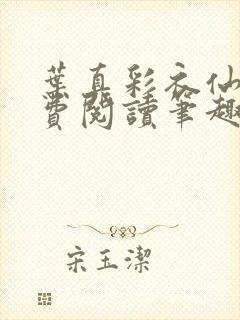 葉真彩衣仙
費閱讀筆趣
宋玉潔